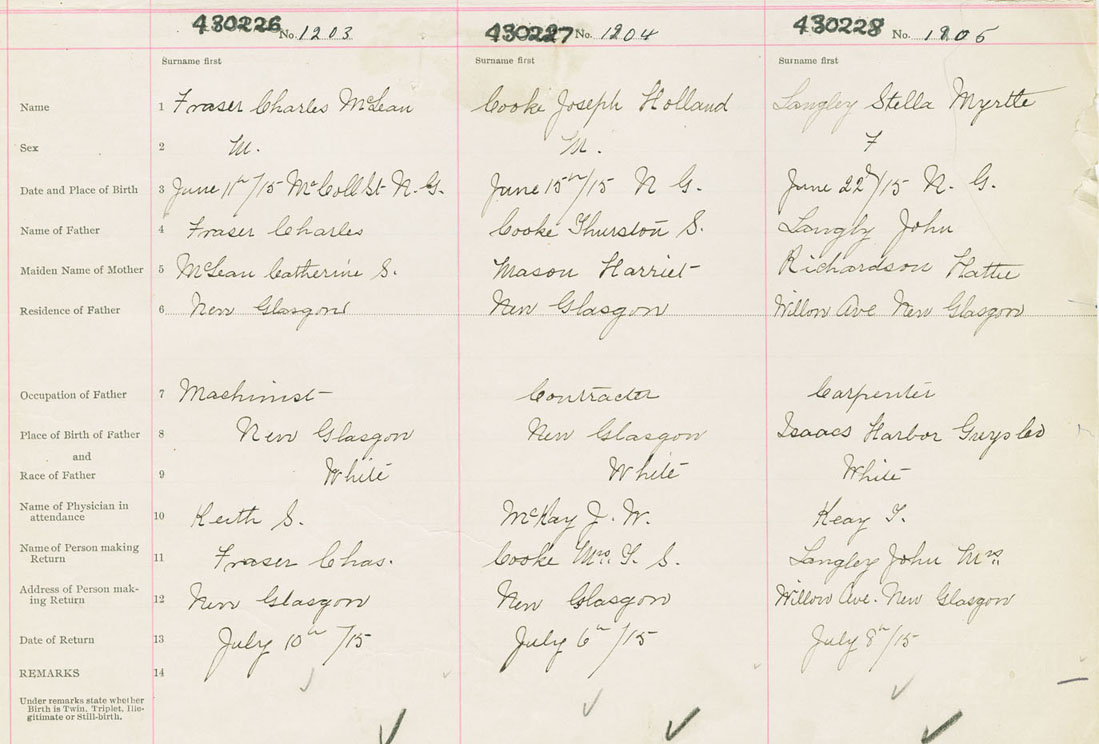 430226 No. 1203 430227 No. 1204 430228 No. 1205
Surname first Surname first Surname first
Name 1 Fraser Charles McLean Cooke Joseph Holland Langley Stella Myrtle
Sex 2 M. M. F
Date and Place of Birth 3 June 11th/15 McColl St N. G. June 15th/15 N G. June 22nd/15 N. G.
Name of Father 4 Fraser Charles Cooke Thurston S. Langly John
Maiden Name of Mother 5 McLean Catherine S. Mason Harriet Richardson Hattie
Residence of Father 6 New Glasgow New Glasgow Willow Ave New Glasgow
Occupation of Father 7 Mashinist Contracter Carpenter
Place of Birth of Father 8 New Glasgow New Glasgow Isaacs Harbor Guys Co
and
Race of Father 9 White White White
Name of Physician in
attendance 10 Keith S. McKay J. W. Keay T.
Name of Person making
Return 11 Fraser Chas. Cooke Mrs. T. S. Langley John Mrs
Address of Person mak-
ing Return 12 New Glasgow New Glasgow Willow Ave. New Glasgow
Date of Return 13 July 10th/15 July 6th/15 July 8th/15
REMARKS 14
Under remarks state whether
Birth is Twin, Triplet, Ille-
gitimate or Still-birth.